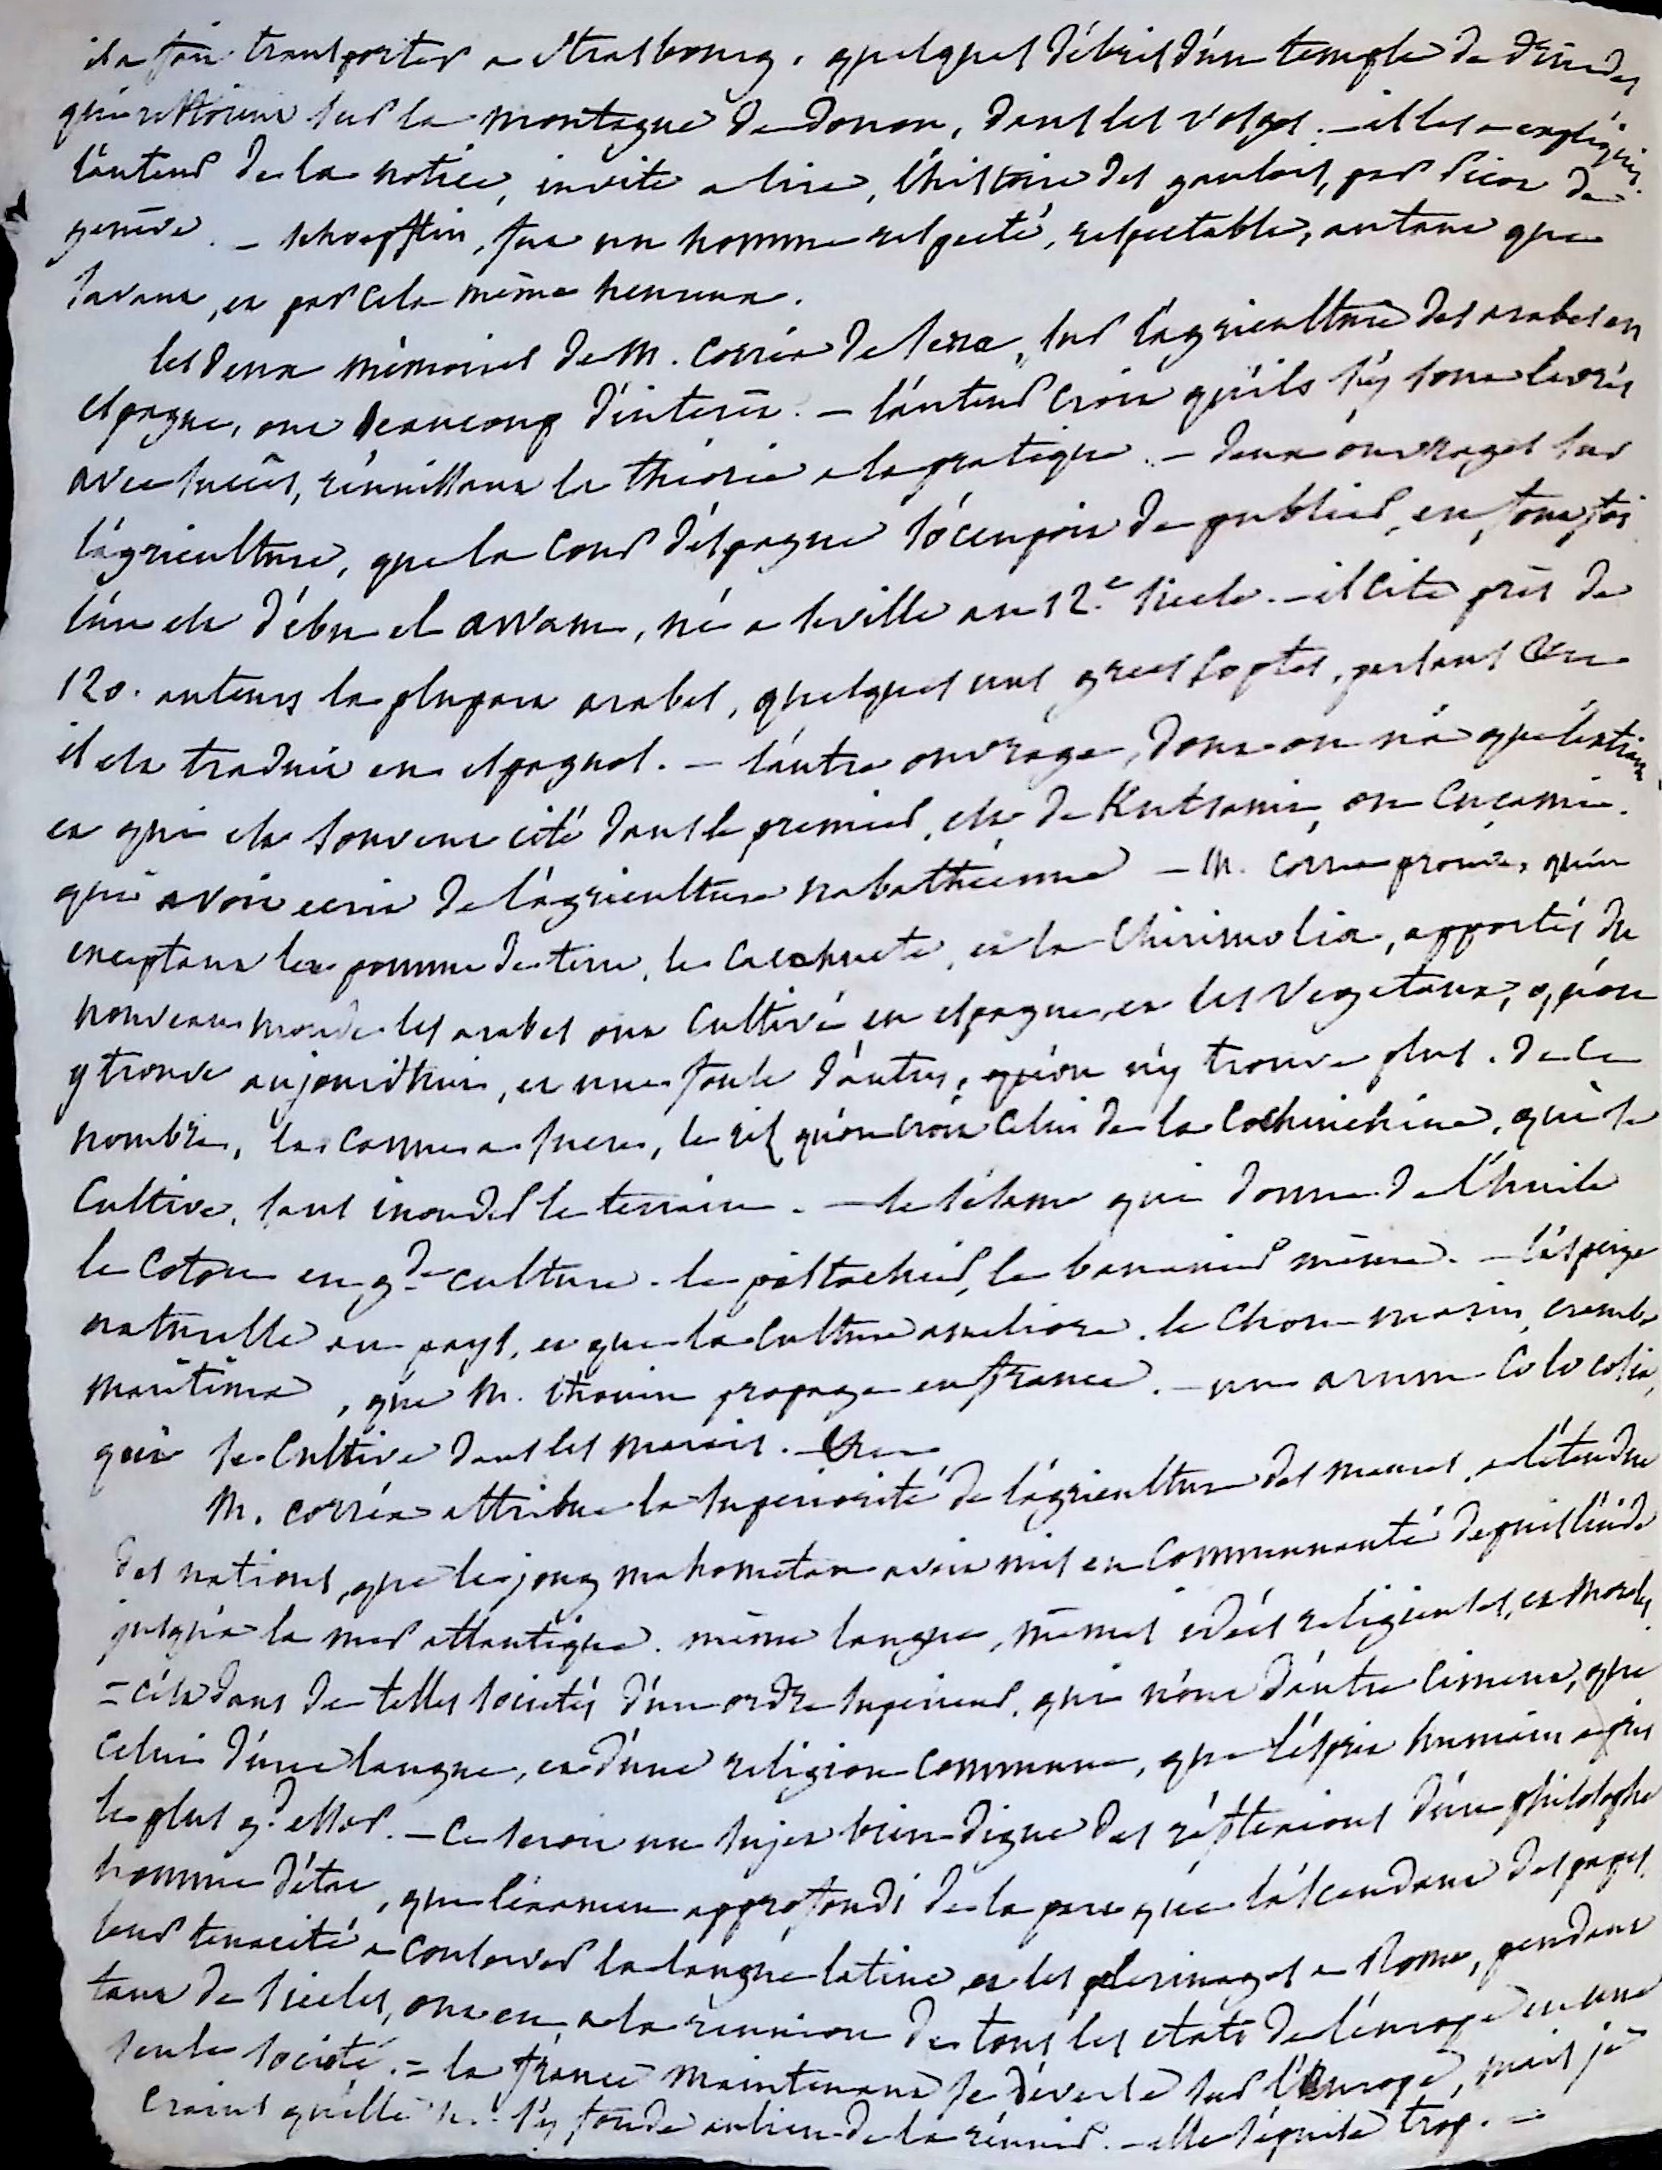 il a fait transporter a Strasbourg, quelques débris d'un temple de druides
qui restoient sur la montagne de donon, dans les Vosges. – il les a expliqués.
l'auteur de la notice, invite a lire, l'histoire des gaulois, par Picot de
genève. – schoepflin, fut un homme respecté, respectable, autant que
savant, et par cela même heureux.
les deux mémoires de M. Corréa de Serra, sur l'agriculture des arabes en
espagne, ont beaucoup d'intérêt. – l'auteur croit qu'ils s'y sont livrés
avec succès, réunissant la théorie a la pratique. – deux ouvrages sur
l'agriculture, que la Cour d'espagne s'occupoit de publier, en font foi
l'un est d'ebn el awam, né a seville au 12.e siecle. – il cite près de
120. auteurs la plupart arabes, quelques uns grecs, persans &c
il est traduit en espagnol. – l'autre ouvrage, dont on n'a que l'extrait
et qui est souvent cité dans le premier, est de Kutsami, ou Cuçami.
qui avoit ecrit de l'agriculture nabathéenne – M. Correa prouve, qu'en
exceptant la pomme de terre, le Cacahuete, et la Chirimolia, apportés du
nouveau monde les arabes ont cultivé en espagne, et les Vegetaux, qu'on
y trouve aujourd'hui, et une foule d'autres, qu'on n'y trouve plus. de ce
nombre, la canne a sucre, le ris qu'on croit celui de la Cochinchine, qui se
Cultive, sans inonder le terrain. – le sésame qui donne de l'huile
le Coton en g.de culture. le pistachier, le bananier même. – l'asperge
naturelle au pays, et que la Culture améliore. le Chou marin, crambe
maritima, que M. thouin propage en france. – un arum Colocasia,
qui se Cultive dans les marais. &c
M. Corréa attribue la superiorité de l'agriculture des maures, a l'étendue
des nations, que le joug mahometan avoit mis en Communauté depuis l'inde
jusqu'a la mer atlantique. même langue, mêmes idées religieuses, et morales,
= c'est dans de telles societés d'un ordre superieur, qui n'ont d'autre ciment, que
celui d'une langue, et d'une religion commune, que l'esprit humain a pris
le plus g.d essor. – Ce seroit un sujet bien digne des réflexions d'un philosophe
homme d'état, que l'examen approfondi de la part que l'ascendant des papes
leur tenacité a conserver la langue latine, et les pelerinages a Rome, pendant
tant de siecles, ont eu, a la réunion de tous les etats de l'europe en une
seule société. = la france maintenant se déverse sur l'Europe, mais je
crains qu'elle ne s'y fonde au lieu de la réunir. – elle s'épuise trop. –